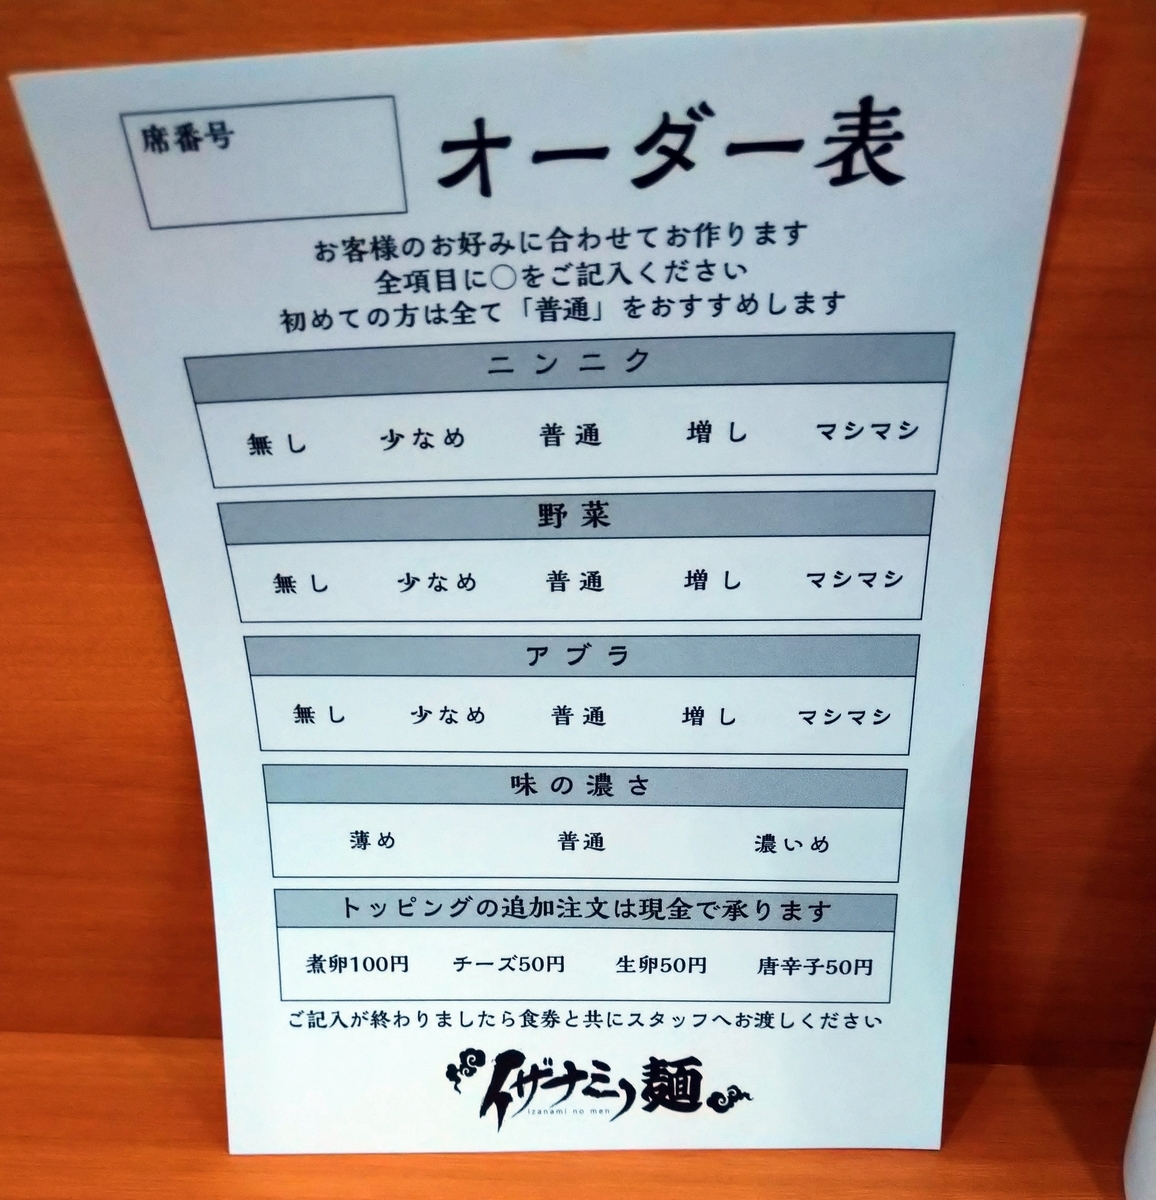 席番号
オーダー表
お客様のお好みに合わせてお作ります
全項目に〇をご記入ください
初めての方は全て「普通」をおすすめします
ニンニク
無し 少なめ 普通 増し マシマシ
野菜
無し 少なめ 普通 増し マシマシ
アブラ
無し 少なめ 普通 増し マシマシ
味の濃さ
薄め 普通 濃いめ
トッピングの追加注文は現金で承ります
煮卵100円 チーズ50円 生卵50円 唐辛子50円
ご記入が終わりましたら食券と共にスタッフへお渡しください
イザナミノ麺
izanami no men